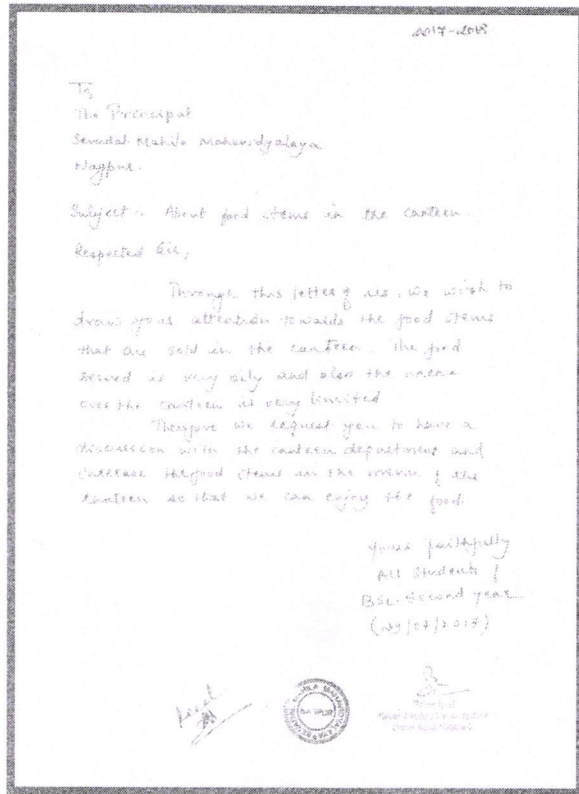 2017-2018
To,
The Principal
Sevadal Mahila Mahavidyalaya
Nagpur.
Subject :- About food items in the canteen.
Respected Sir,
Through this letter of us, we wish to
draw your attention towards the food items
that are sold in the canteen. The food
served is very oily and also the
over the canteen is very limited
Therefore we request you to have a
discussion with the canteen department and
increase the food items in the menu of the
canteen so that we can enjoy the food.
Yours faithfully
All Students of
BSc. Second year
Principal